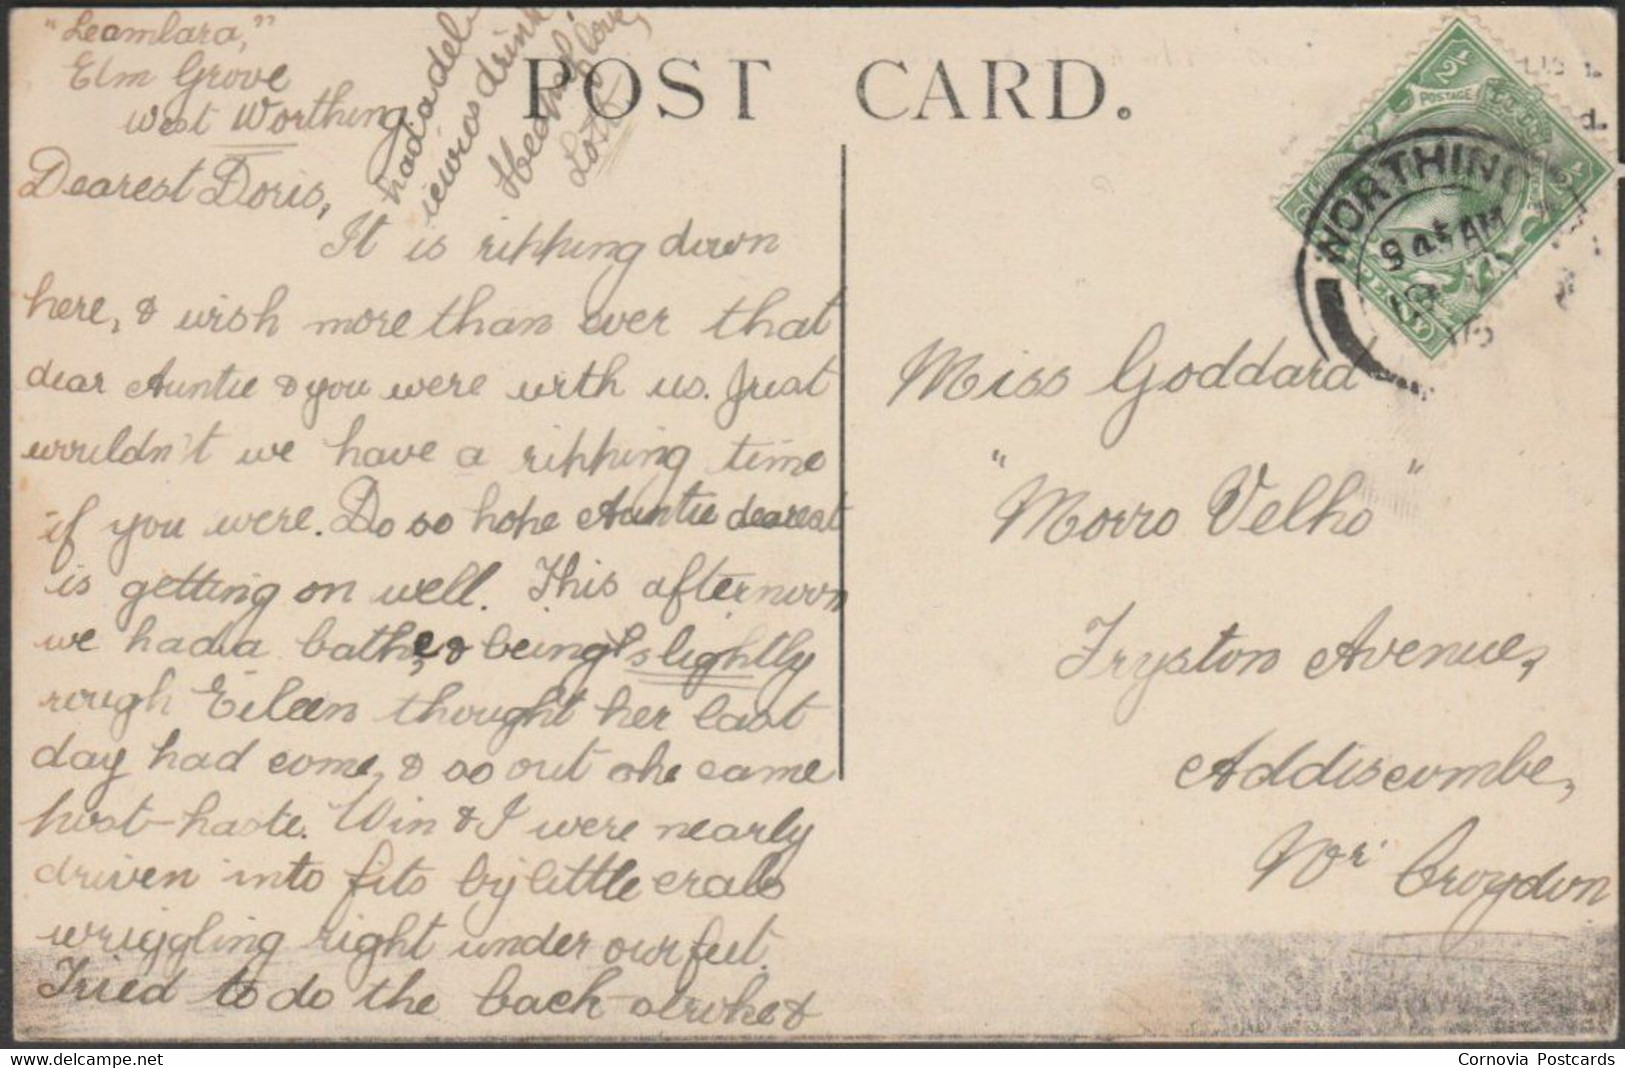 "Leamlara,"
Elm Grove
West Worthing.
Dearest Doris,
It is ripping down
here, & wish more than ever that
dear Auntie & you were with us. Just
wouldn't we have a ripping time
if you were. Do so hope Auntie dearest
is getting on well. This afternoon
we had a bathe, & being slightly
rough Eileen thought her last
day had come, & so out she came
post-haste. Win & I were nearly
driven into fits by little crabs
wriggling right under our feet.
Tried to do the back-stroke &
had a del
icious drink
Heaps love,
POST CARD.
½
POSTAGE
½
WORTHING
9 45 AM
Miss Goddard
"Morro Velho"
Tryston Avenue,
Addiscombe,
Nr. Croydon
Cornovia Postcards